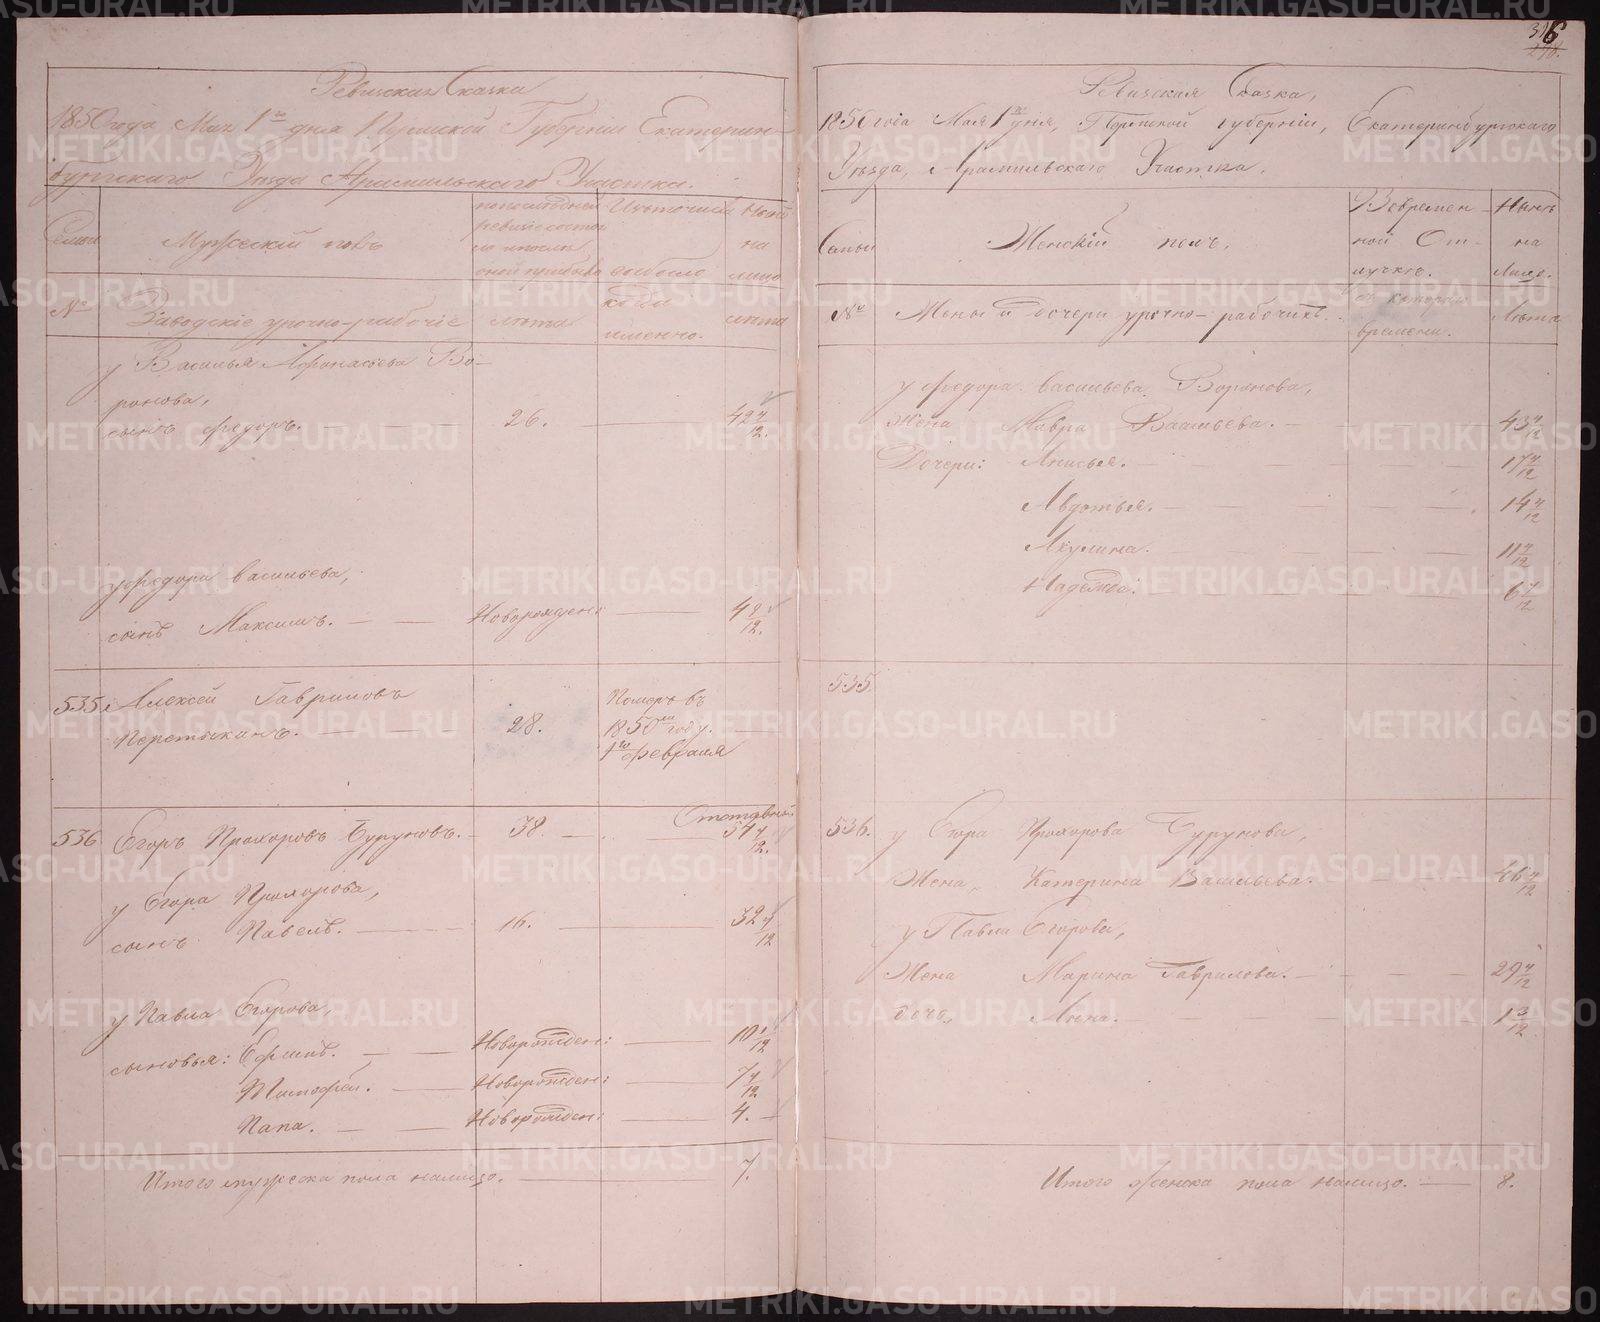 316
Ревизская Сказка
1850 года Мая 1го дня Пермской Губернии Екатерин-
бургскаго Уѣзда Арамильскаго Участка.
Семьи
Мужескій полъ
по последней ревизіи состоя
ло
Изъ того числа
выбыло
Нынѣ
на
лицо
№
Заводскіе урочно-рабочіе
лѣта
когда
именно.
лѣта
у Василья Афонасьева Во-
ронова,
сынъ Федоръ. 26. 42 4/12.
у Федора Васильева,
сынъ Максимъ. Новорожден: 4 2/12.
535 Алексей Гавриловъ
Перетыкинъ. 28.
Померъ въ
1850мъ году.
1го февраля
Отставной
536 Егоръ Прохоровъ Буруновъ. 38. 54 4/12.
у Егора Прохорова,
сынъ Павелъ. 16. 32 4/12
у Павла Егорова,
сыновья: Ефимъ. Новорожден: 10 1/12
Тимофей. Новорожден: 7 4/12
Папа. Новорожден: 4.
Итого мужеска пола налицо. 7.
Ревизская Сказка,
1850 года Мая 1го дня, Пермской губерніи, Екатеринбургскаго
Уѣзда, Арамильскаго Участка.
Семьи
Женскій полъ.
Во времен-
ной От-
лучкѣ.
Нынѣ
на
Лицо.
№
Жены и дочери урочно-рабочихъ.
съ котораго
времени.
Лѣта
у Федора Васильева Воронова,
Жена Мавра Васильева. 43 4/12
Дочери: Анисья. 17 4/12
Авдотья. 14 4/12
Акулина. 11 4/12
Надежда. 6 4/12
535.
536. у Егора Прохорова Бурунова,
Жена, Катерина Васильева. 46 4/12
у Павла Егорова,
Жена Марина Гаврилова. 29 4/12
дочь, Анна. 1 3/12
Итого женска пола налицо. 8.
METRIKI.GASO-URAL.RU